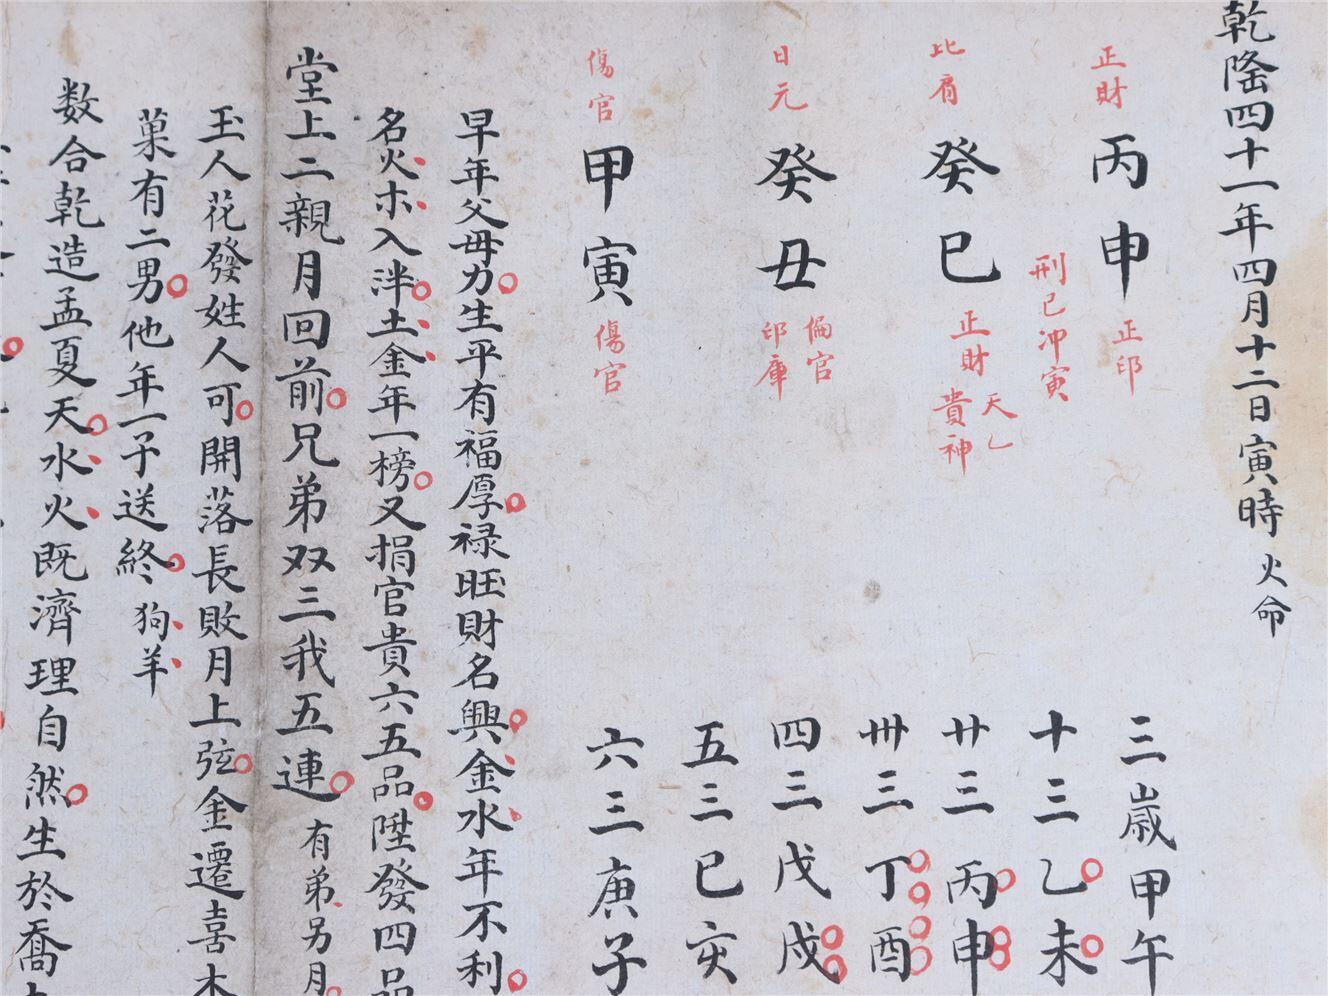 乾隆四十一年四月十二日寅時 火命
正財
丙申
正印
刑巳冲寅
比肩
癸巳
正財
天乙
貴神
日元
癸丑
偏官
印庫
傷官
甲寅
傷官
三歲甲午
十三乙未
廿三丙申
卅三丁酉
四三戊戌
五三己亥
六三庚子
早年父母力生平有福厚禄旺財名興金水年不利
名火木入泮土金年一榜又捐官貴六五品陞發四品
堂上二親月回前兄弟双三我五連 有弟另月
玉人花發姓人可開落長敗月上弦金遷喜木
菓有二男他年一子送終 狗羊
数合乾造孟夏天水火既濟理自然生於喬